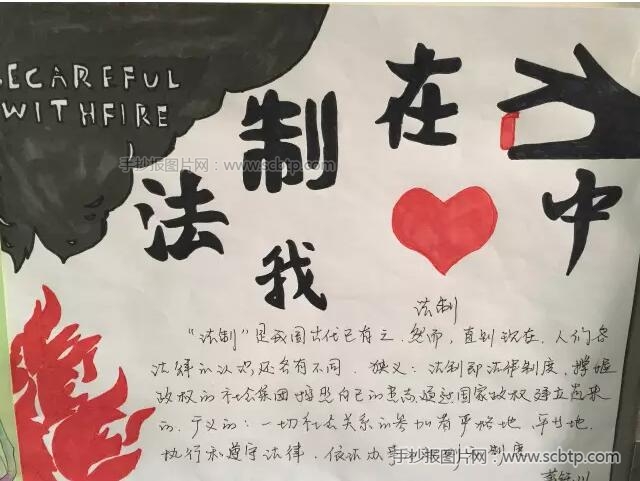 ECAREFUL
WITHFIRE
法制在
我❤中
手抄报图片网:www.scbtp.com
法制
“法制”是我国古代已有之.然而,直到现在.人们各
法律的认识还各有不同.狭义:法制即法律制度,掌握
政权的社会集团按照自己的意志通过国家政权建立起来
的.广义的:一切社会关系的参加者严格地、平等地.
执行和遵守法律.依法办事的 制度
手抄报图片网:www.scbtp.com